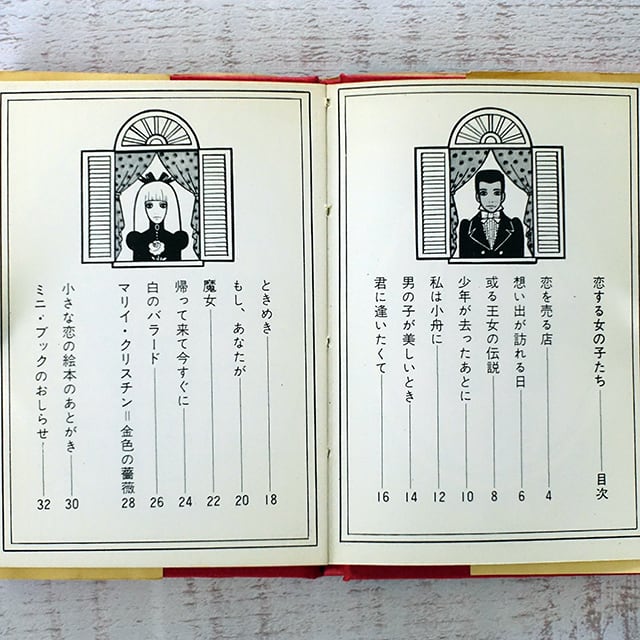 恋する女の子たち 目次
恋を売る店 4
想い出が訪れる日 6
或る王女の伝説 8
少年が去ったあとに 10
私は小舟に 12
男の子が美しいとき 14
君に逢いたくて 16
ときめき 18
もし、あなたが 20
魔女 22
帰って来て今すぐに 24
白のバラード 26
マリイ・クリスチン=金色の薔薇 28
小さな恋の絵本のあとがき 30
ミニ・ブックのおしらせ 32